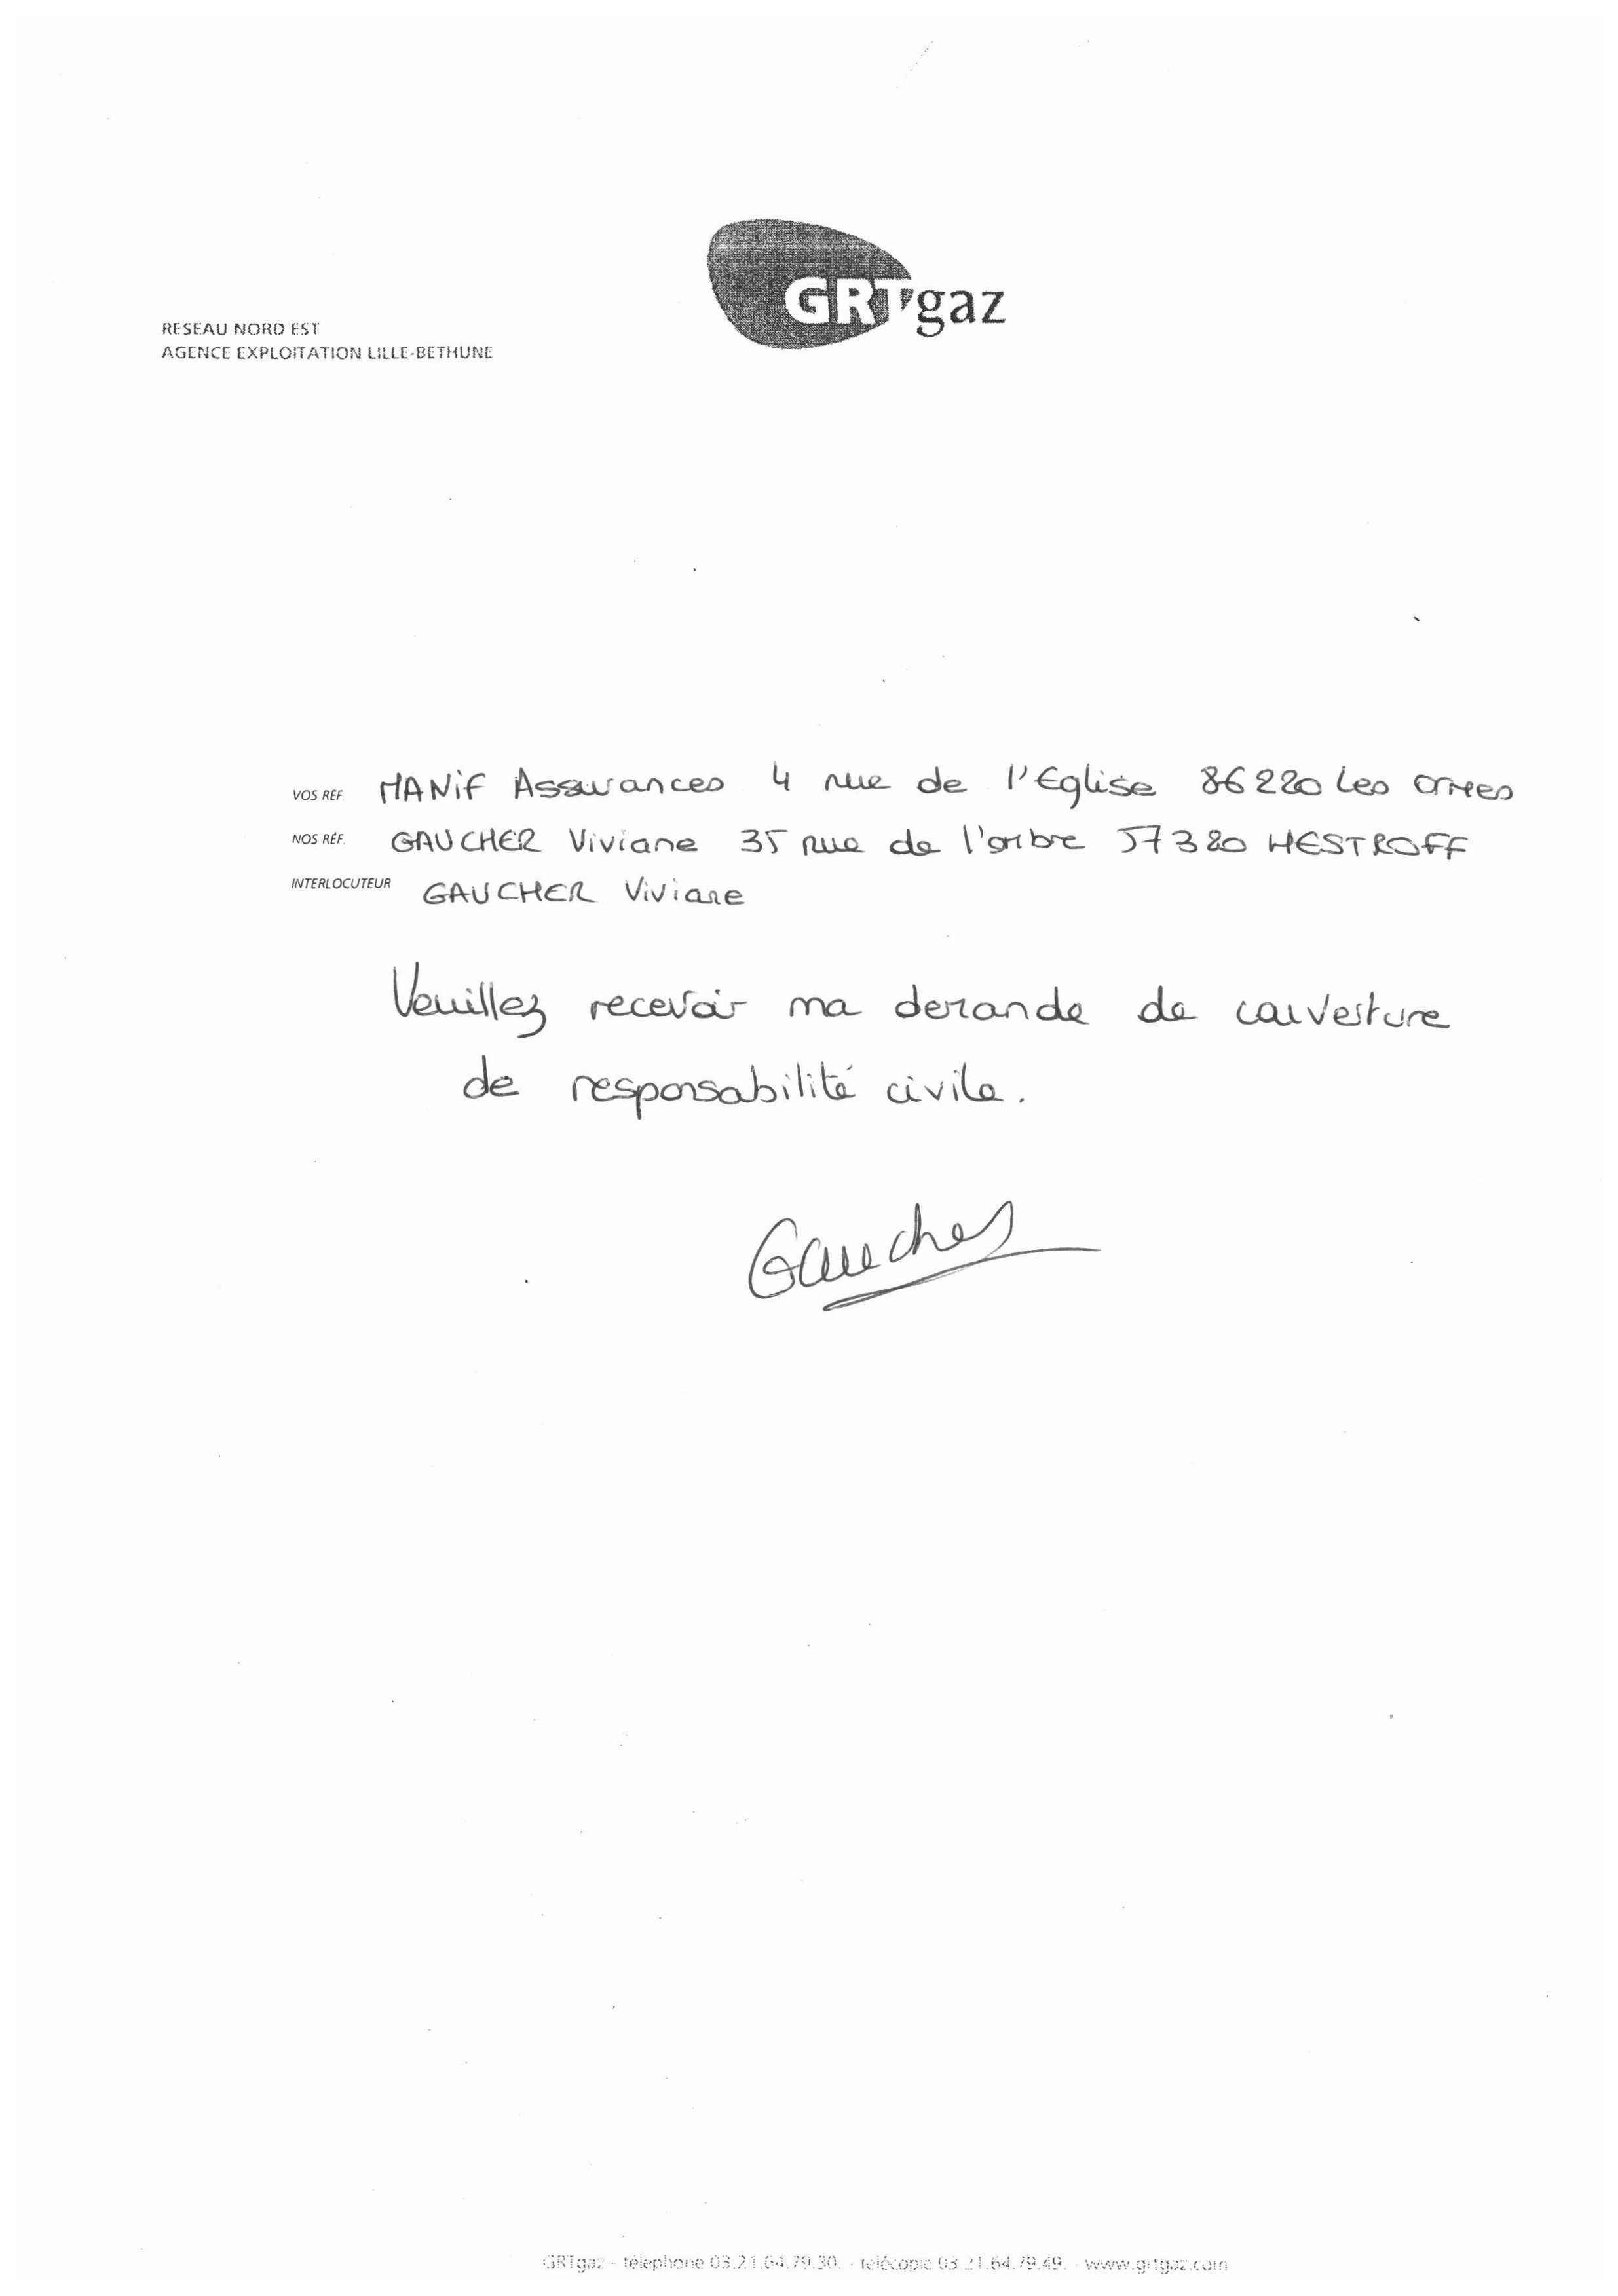 GRTgaz
RESEAU NORD EST
AGENCE EXPLOITATION LILLE-BETHUNE
VOS RÉF. MANiF Assurances 4 rue de l'Eglise 86220 Les Ormes
NOS RÉF. GAUCHER Viviane 35 rue de l'ombre 57320 HESTROFF
INTERLOCUTEUR GAUCHER Viviane
Veuillez recevoir ma demande de couverture
de responsabilité civile.
Gaucher
GRTgaz - téléphone 03.21.64.79.30. - télécopie 03.21.64.79.49. - www.grtgaz.com